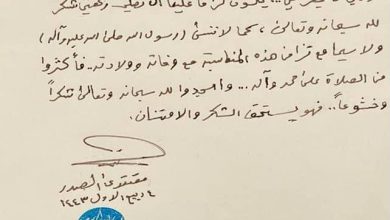 لله سبحانه وتعالى، كما لا ننسى (رسول الله صلى الله عليه وآله)
ولا سيما مع تزامن هذه المناسبة مع وفاته وولادته.. فأكثروا
من الصلاة على محمد وآله... واسجدوا لله سبحانه وتعالى شكراً
وخشوعاً.. فهو يستحق الشكر والامتنان.
مقتدى الصدر
٤ ربيع الاول ١٤٤٣